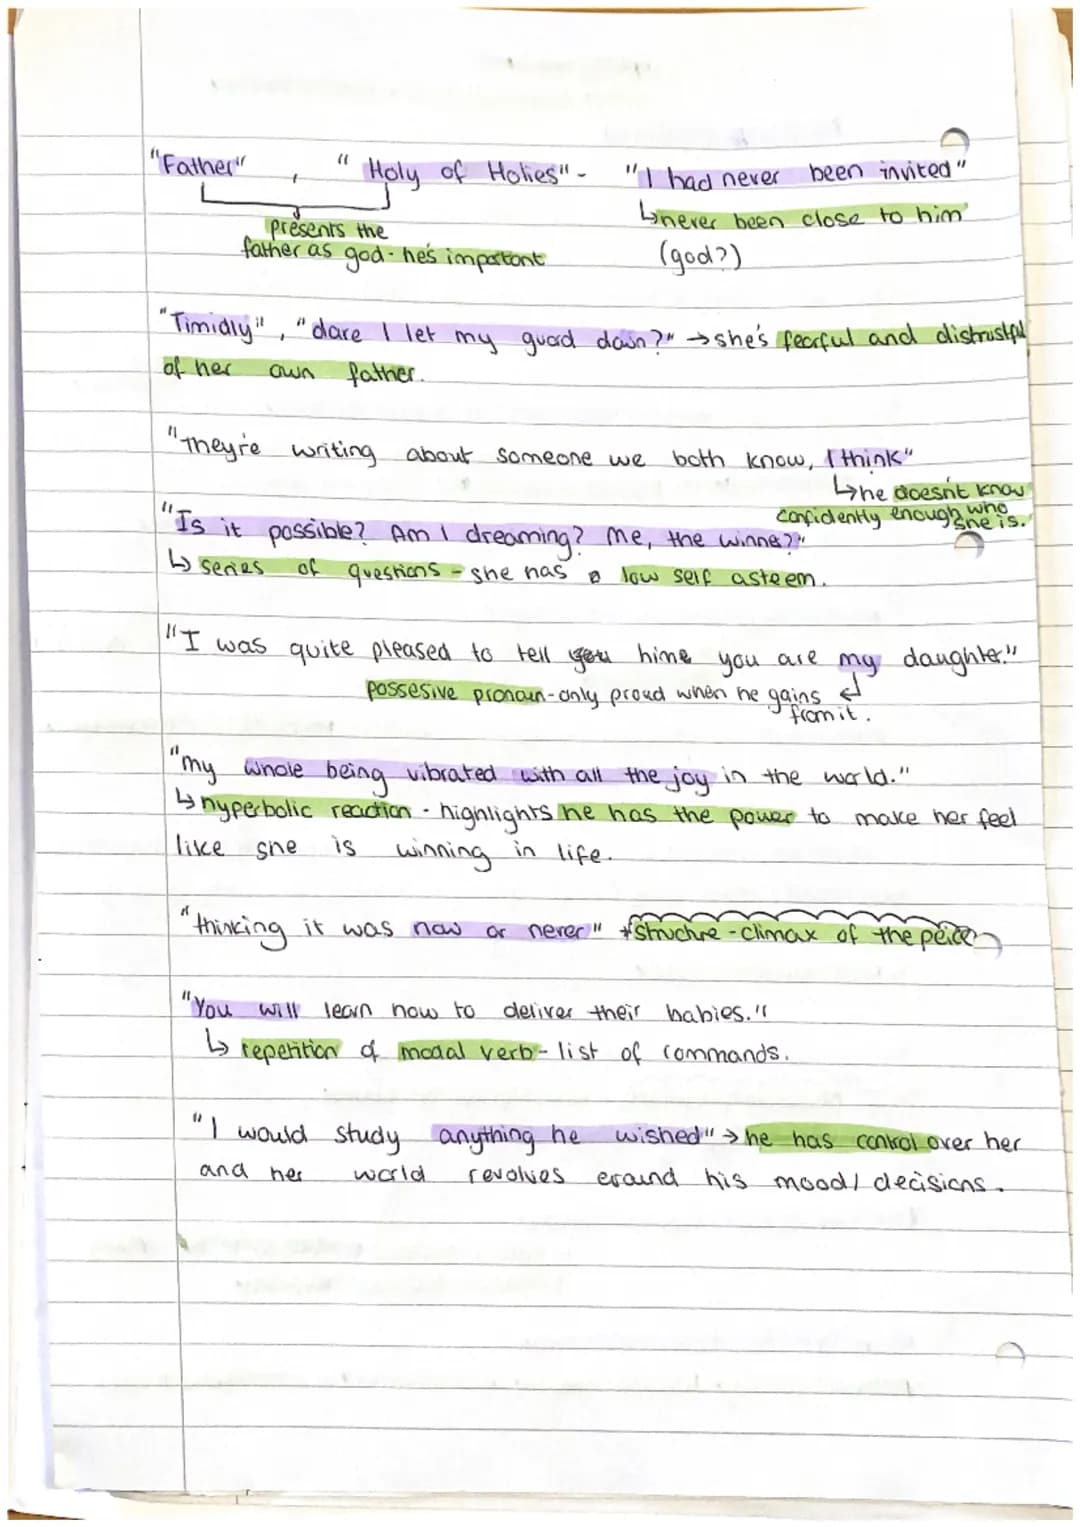 "Father" , "Holy of Holies" - "I had never been invited"
presents the
father as god - he's important
↳ never been close to him
(god?)
"Timidly", "dare I let my guard down?" → she's fearful and distrustful
of her own father.
"They're writing about someone we both know, I think"
↳ he doesn't know
confidently enough who
she is.
"Is it possible? Am I dreaming? Me, the winner?"
↳ series of questions - she has a low self asteem.
"I was quite pleased to tell you hime you are my daughter."
possesive pronoun - only proud when he gains
from it.
"my whole being vibrated with all the joy in the world."
↳ hyperbolic reaction - highlights he has the power to make her feel
like she is winning in life.
"thinking it was now or never" *structure - climax of the peice
"You will learn how to deliver their babies."
↳ repetition of modal verb - list of commands.
"I would study anything he wished" → he has control over her
and her world revolves eround his mood/decisions.